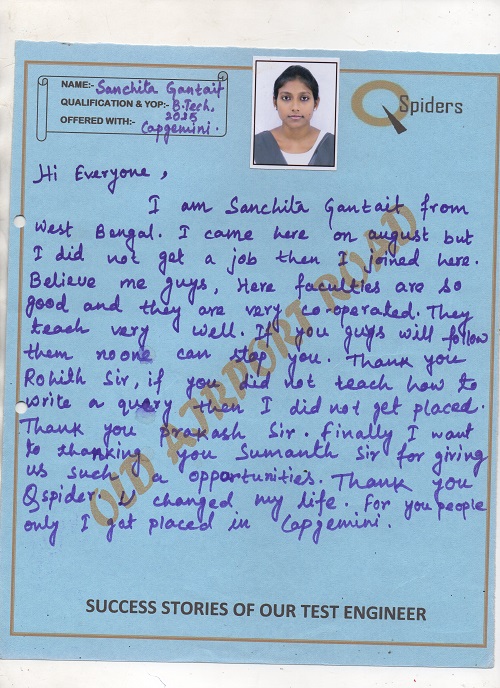 NAME:- Sanchita Gantait
QUALIFICATION & YOP:- B.Tech, 2015
OFFERED WITH:- Capgemini.
Spiders
Hi Everyone,
I am Sanchita Gantait from
West Bangal. I came here on august but
I did not get a job then I joined here.
Believe me guys, Here faculties are so
good and they are very co-operated. They
teach very well. If you guys will follow
them noone can stop you. Thank you
Rohith Sir, if you did not teach how to
write a query then I did not get placed.
Thank you prakash Sir. Finally I want
to thanking you Sumanth Sir for giving
us such a opportunities. Thank you
Qspider. U changed my life. For you people
only I get placed in Capgemini.
OLD AIRPORT ROAD
SUCCESS STORIES OF OUR TEST ENGINEER